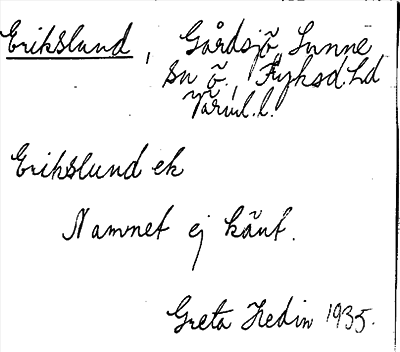 Erikslund, Gårdsjö, Sunne
sn ö, Fryksd. hd
Värml. l.
Erikslund ek
Namnet ej känt.
Greta Hedin 1935.